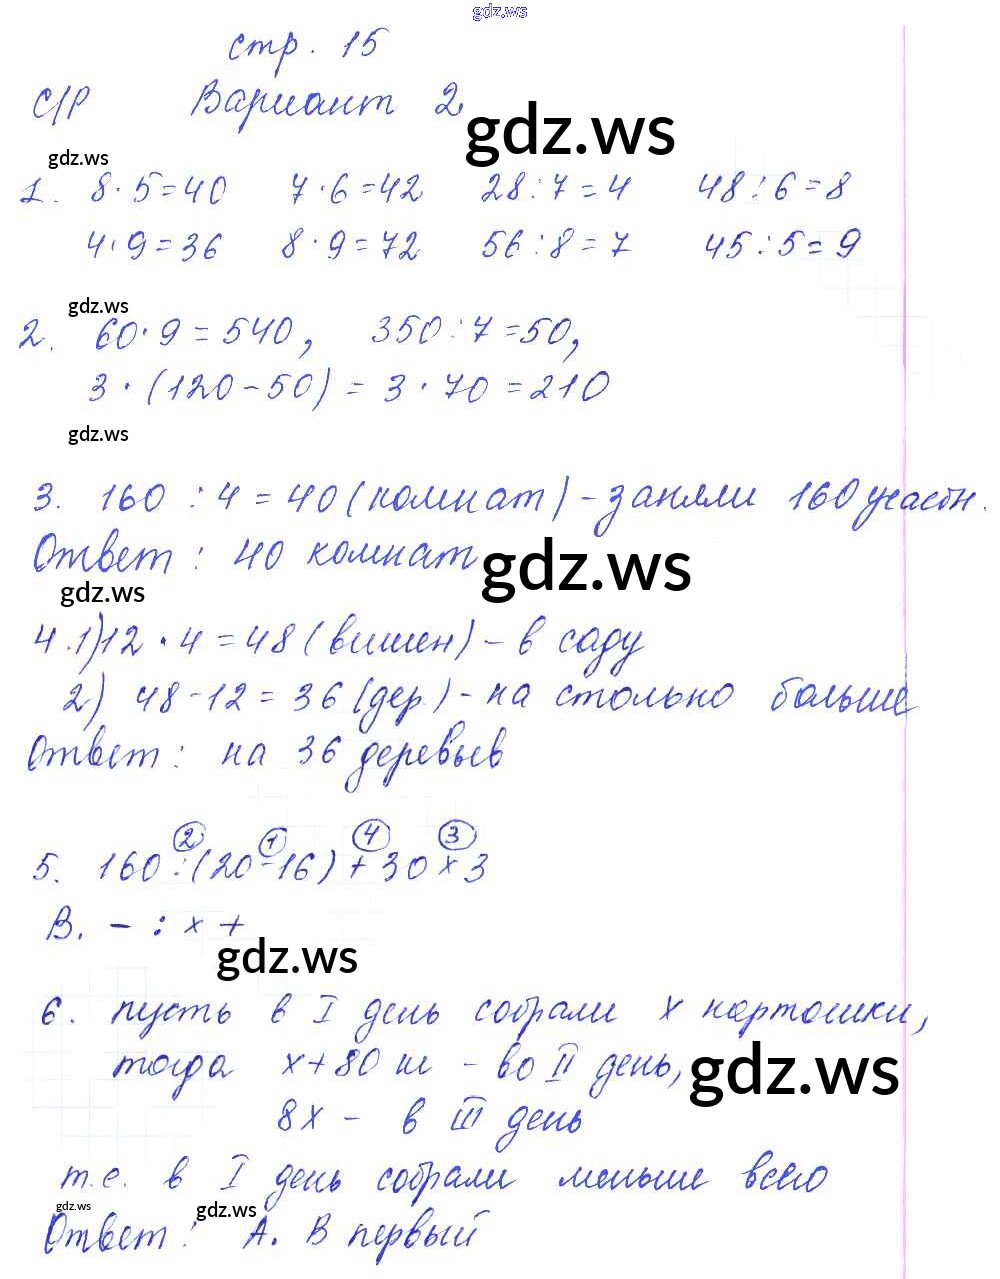 gdz.ws
стр. 15
С/Р Вариант 2.
gdz.ws
gdz.ws
1. 8·5=40 7·6=42 28:7=4 48:6=8
4·9=36 8·9=72 56:8=7 45:5=9
gdz.ws
2. 60·9=540, 350:7=50,
3·(120-50)=3·70=210
gdz.ws
3. 160:4=40(комнат)-заняли 160 участн.
Ответ: 40 комнат
gdz.ws
gdz.ws
4.1)12·4=48(вишен)-в саду
2) 48-12=36(дер.)-на столько больше
Ответ: на 36 деревьев
2 1 4 3
5. 160:(20-16)+30×3
В. - : × +
gdz.ws
6. пусть в I день собрали х картошки,
тогда х+80 кг - во II день,
gdz.ws
8х - в III день
т.е. в I день собрали меньше всего
gdz.ws gdz.ws
Ответ: А. В первый